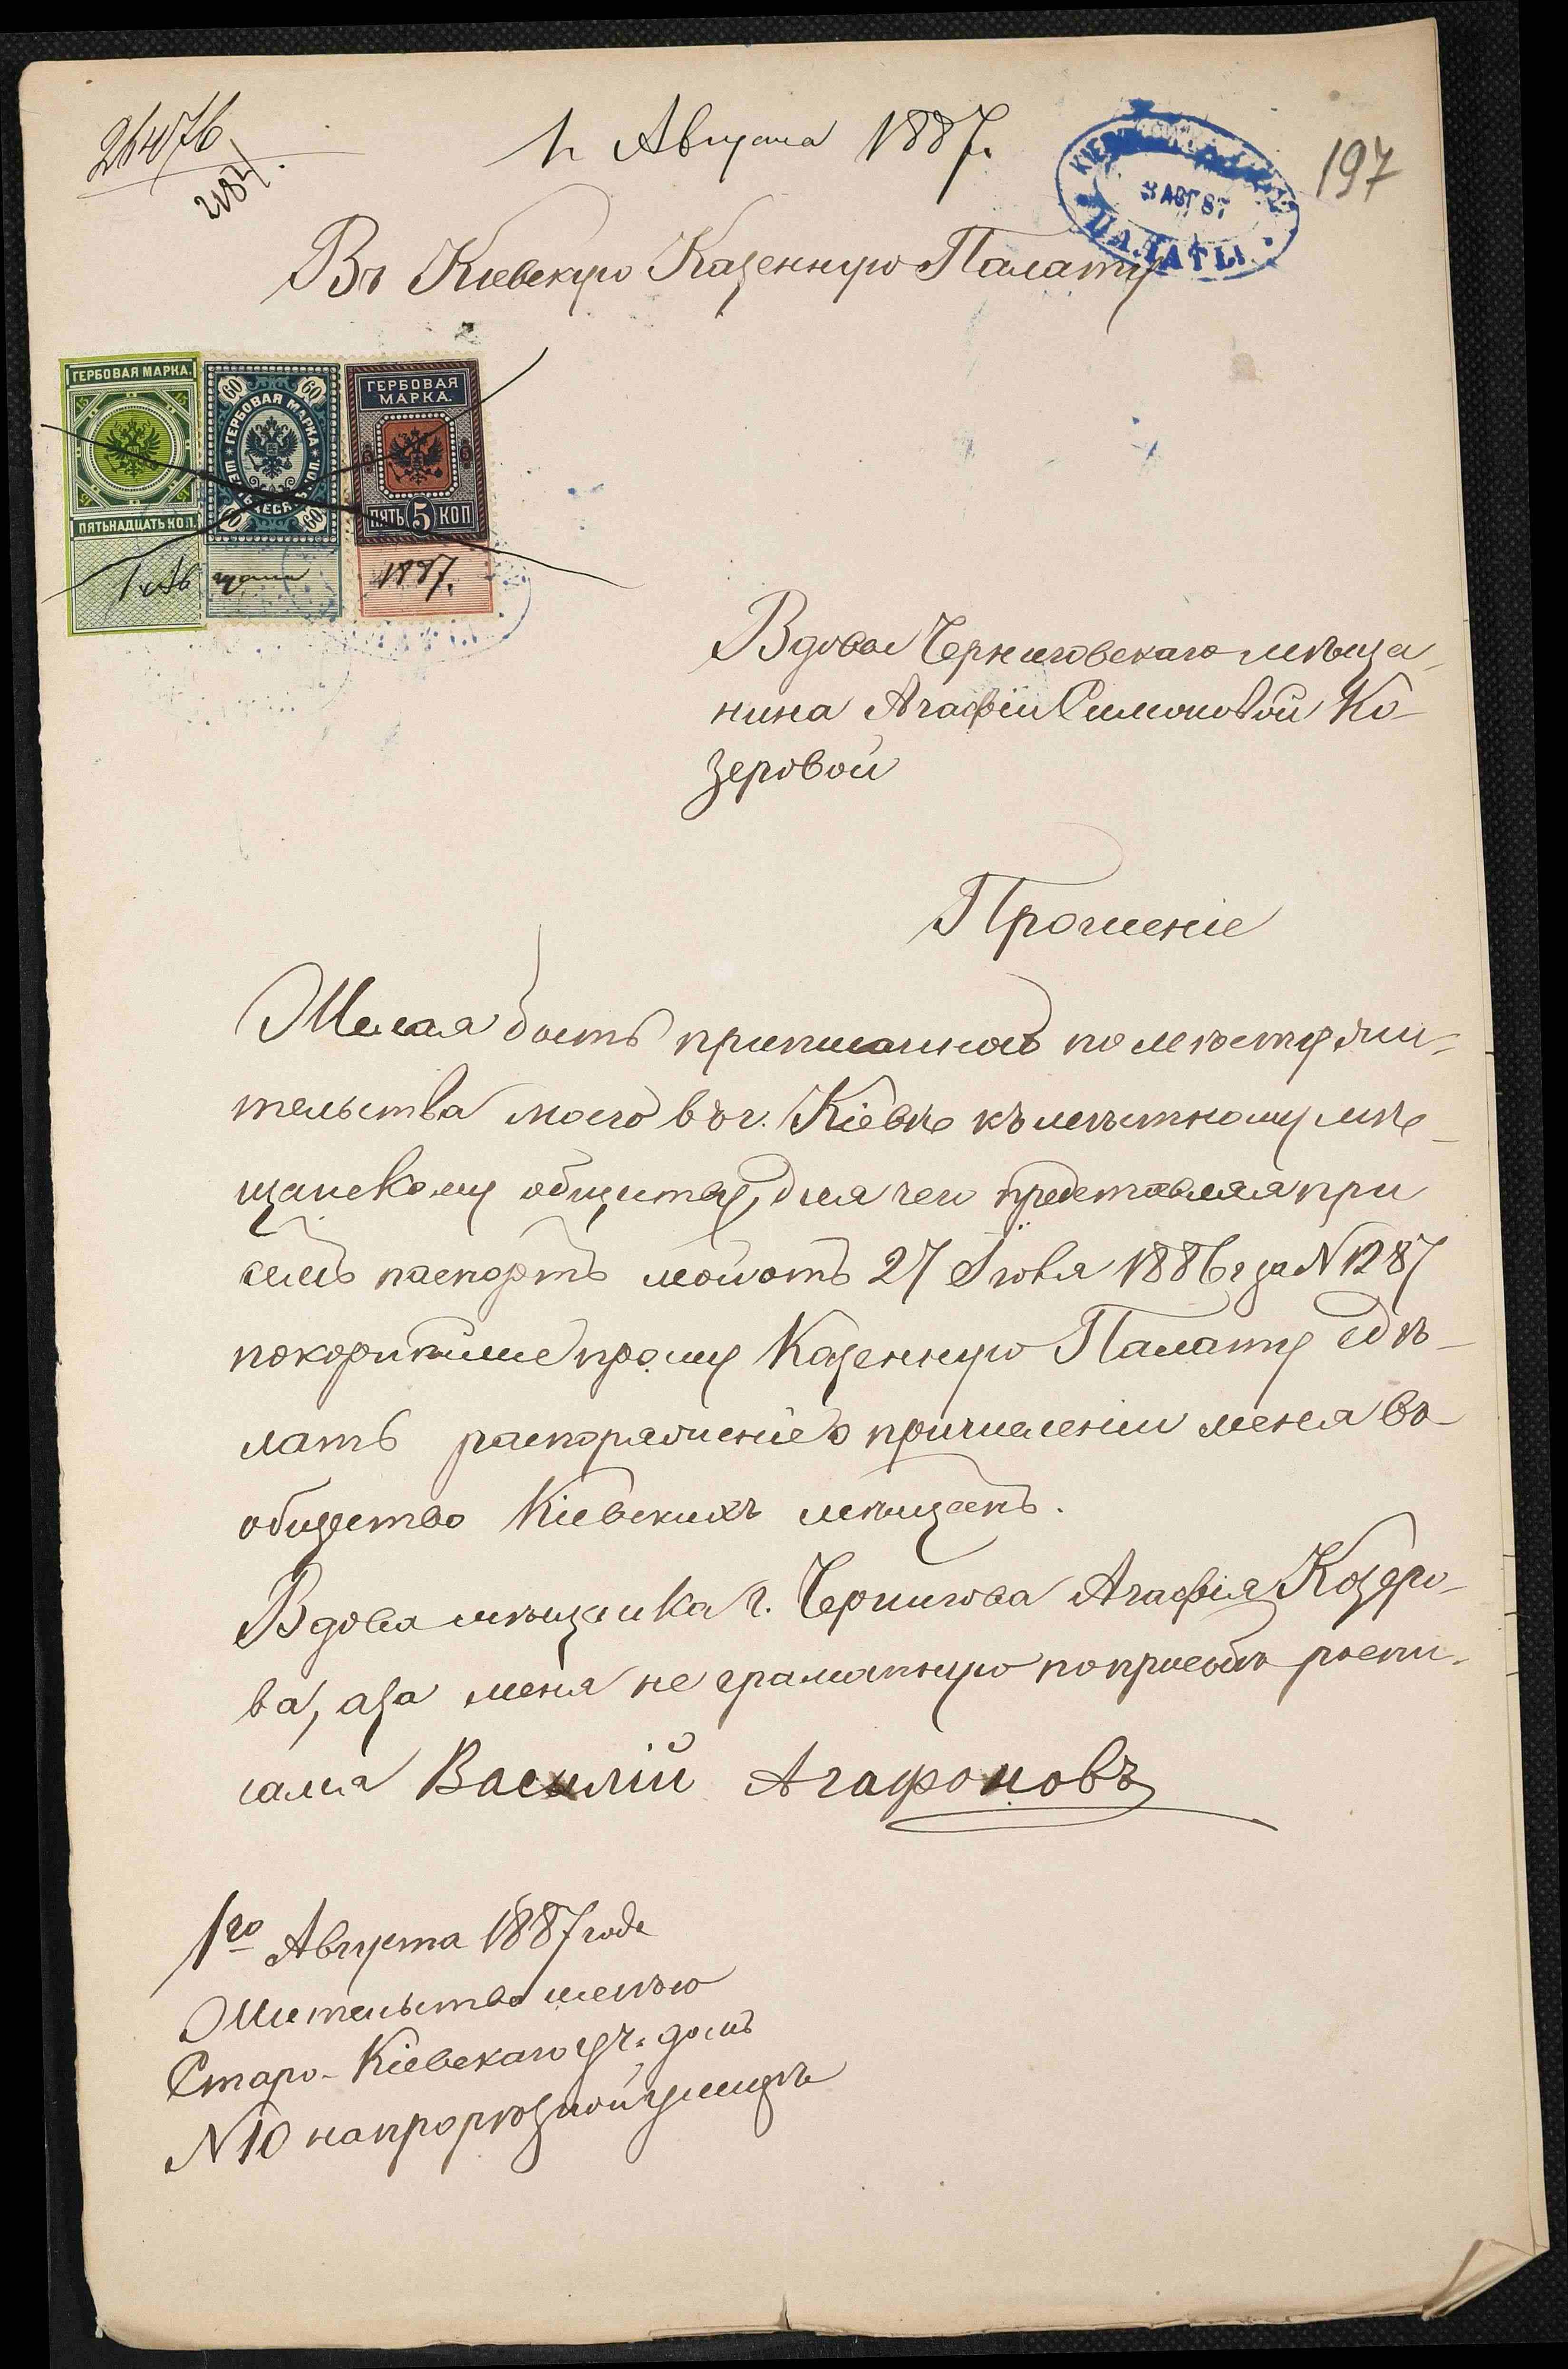 26476
1 Августа 1887.
197
КІЕВ
3 АВГ 87
ПАЛАТЫ
Въ Кіевскую Казенную Палату
ГЕРБОВАЯ МАРКА.
15 15
15 15
ПЯТЬНАДЦАТЬ КОП.
60 60
ГЕРБОВАЯ МАРКА
ШЕСТЬДЕСЯТЪ КОП.
60 60
ГЕРБОВАЯ
МАРКА.
5 5
ПЯТЬ 5 КОП
1 Августа 1887.
Вдовы Черниговскаго мѣща-
нина Агафіи Симоновой Ко-
зеровой
Прошеніе
Желая быть приписанной по мѣсту жи-
тельства моего въ г. Кіевѣ къ мѣстному мѣ-
щанскому обществу, для чего представляя при
семъ паспортъ мой отъ 27 Іюля 1886 г за N 1287
покорнѣйше прошу Казенную Палату сдѣ-
лать распоряженіе о причисленіи меня въ
общество Кіевскихъ мѣщанъ.
Вдова мѣщанка г. Чернигова Агафія Козеро-
ва, а за меня не грамотную по просьбѣ роспи-
сался Василій Агафоновъ
1го Августа 1887 года
Жительство имѣю
Старо-Кіевскаго уч. домъ
N 10 на прорѣзной улицѣ